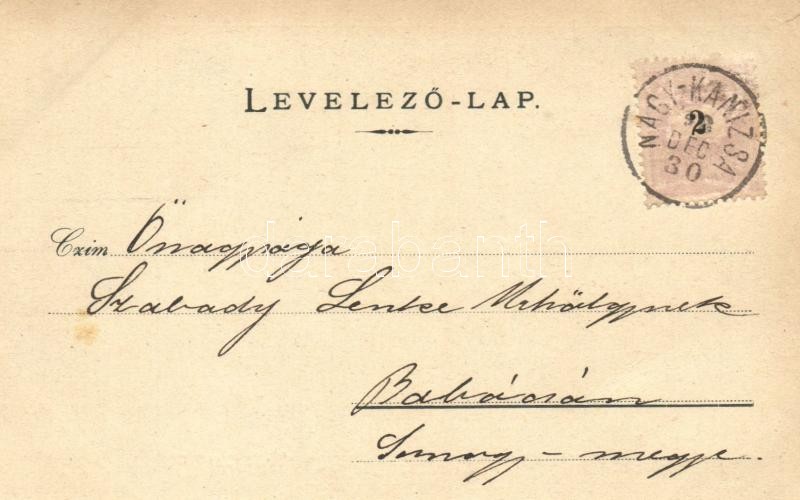 LEVELEZŐ-LAP.
NAGY-KANIZSA
2
DEC
30
Czim Önagysága
Szabady Lenke úrhölgynek
Babócsán
Somogy-megye.
darabanth